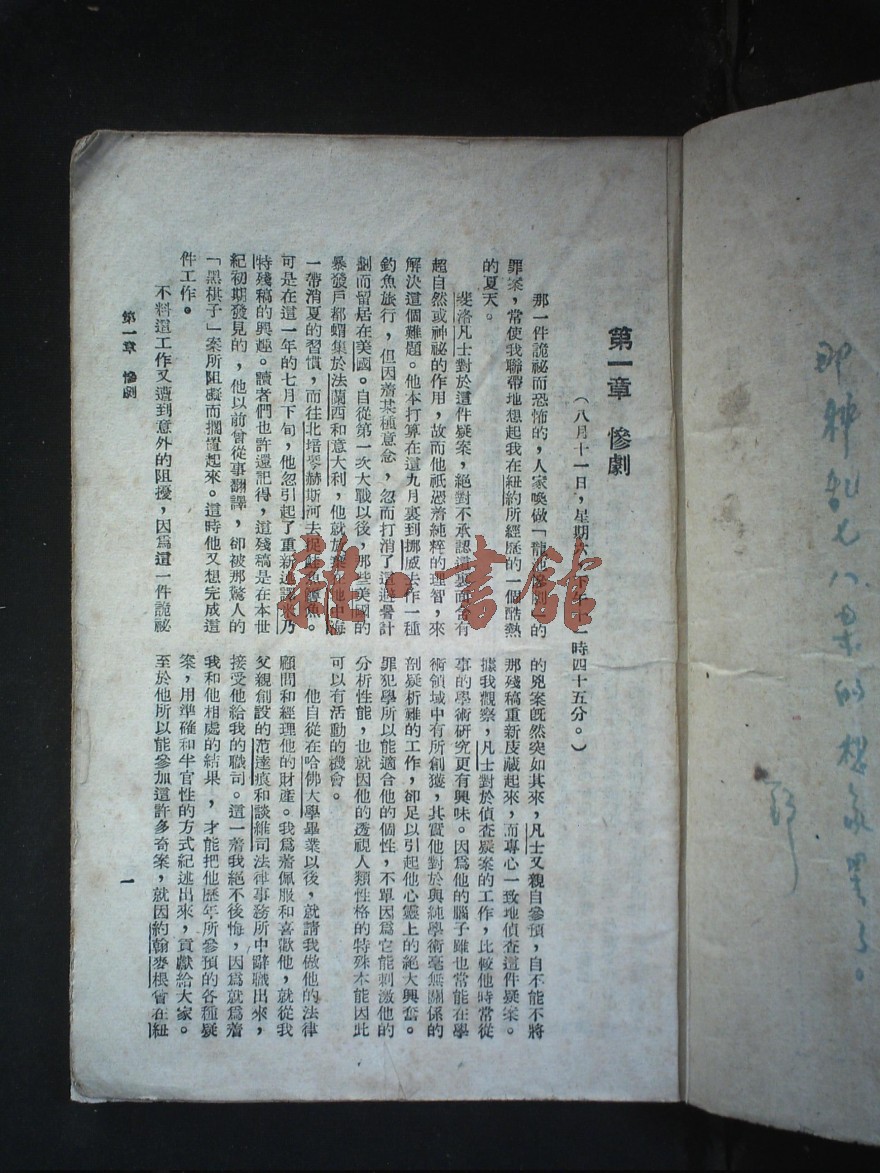 第一章 慘劇
（八月十一日，星期六，下午十一時四十五分。）
那一件詭祕而恐怖的，人家喚做「龍池慘劇」的
罪案，常使我聯帶地想起我在紐約所經歷的一個酷熱
的夏天。
斐洛凡士對於這件疑案，絕對不承認這裏面含有
超自然或神祕的作用，故而他祇憑着純粹的理智，來
解決這個難題。他本打算在這九月裏到挪威去作一種
釣魚旅行，但因着某種意念，忽而打消了這避暑計
劃而留居在美國。自從第一次大戰以後，那些美國的
暴發戶都蝟集於法蘭西和意大利，他就放棄在地中海
一帶消夏的習慣，而往北塔琴赫斯河去捉鮭魚鱒魚。
可是在這一年的七月下旬，他忽引起了重新迻譯米乃
特殘稿的興趣。讀者們也許還記得，這殘稿是在本世
紀初期發見的，他以前曾從事翻譯，卻被那驚人的
「黑棋子」案所阻礙而擱置起來。這時他又想完成這
件工作。
不料這工作又遭到意外的阻擾，因爲這一件詭祕
的兇案旣然突如其來，凡士又親自參預，自不能不將
那殘稿重新庋藏起來，而專心一致地偵查這件疑案。
據我觀察，凡士對於偵查疑案的工作，比較他時常從
事的學術研究更有興味。因爲他的腦子雖也常能在學
術領域中有所創獲，其實他對於與純學術毫無關係的
剖疑析難的工作，卻足以引起他心靈上的絕大興奮。
罪犯學所以能適合他的個性，不單因爲它能刺激他的
分析性能，也就因他的透視人類性格的特殊本能因此
可以有活動的機會。
他自從在哈佛大學畢業以後，就請我做他的法律
顧問和經理他的財產。我爲着佩服和喜歡他，就從我
父親創設的范達痕和談維司法律事務所中辭職出來，
接受他給我的職司。這一着我絕不後悔，因爲就爲着
我和他相處的結果，才能把他歷年所參預的各種疑
案，用準確和半官性的方式紀述出來，貢獻給大家。
至於他所以能參加這許多奇案，就因約翰麥根曾在紐
第一章 慘劇
一
雜·書館